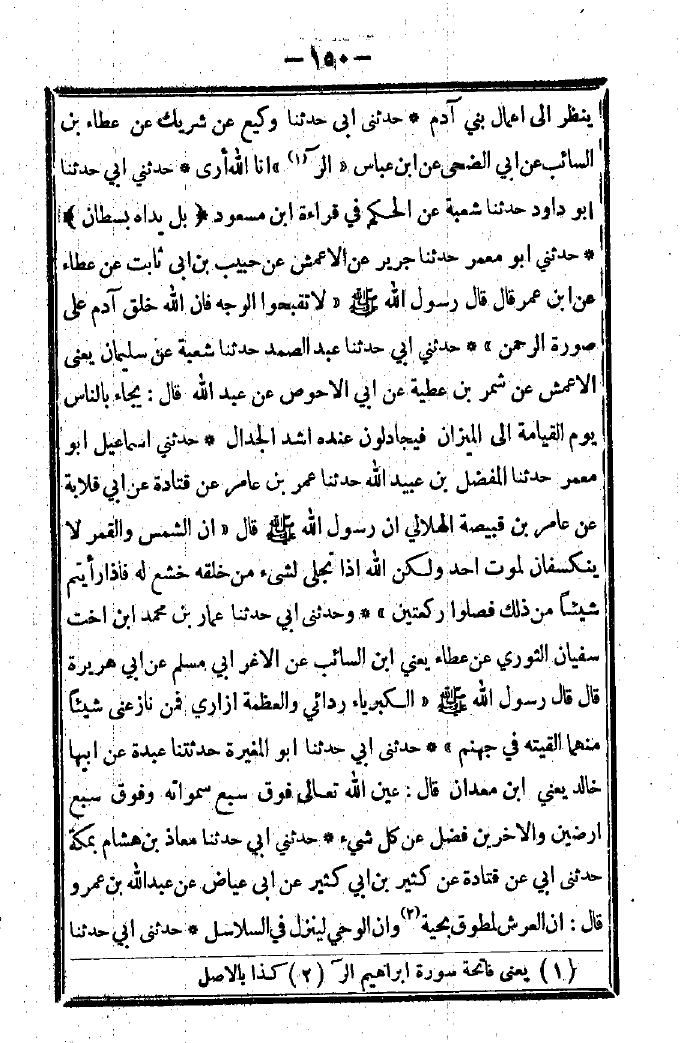 — ١٥٠ —
ينظر الى اعمال بني آدم * حدثنى ابى حدثنا وكيع عن شريك عن عطاء بن
السائب عن ابي الضحى عن ابن عباس « الر (١) » انا الله أرى * حدثني ابي حدثنا
ابو داود حدثنا شعبة عن الحكم في قراءة ابن مسعود ﴿ بل يداه بسطان ﴾
* حدثني ابو معمر حدثنا جرير عن الاعمش عن حبيب بن ابى ثابت عن عطاء
عن ابن عمر قال قال رسول الله ﷺ « لا تقبحوا الوجه فان الله خلق آدم على
صورة الرحمن » * حدثني ابي حدثنا عبد الصمد حدثنا شعبة عن سليمان يعنى
الاعمش عن شمر بن عطية عن ابي الاحوص عن عبد الله قال : يجاء بالناس
يوم القيامة الى الميزان فيجادلون عنده اشد الجدال * حدثني اسماعيل ابو
معمر حدثنا المفضل بن عبيد الله حدثنا عمر بن عامر عن قتادة عن ابي قلابة
عن عامر بن قبيصة الهلالي ان رسول الله ﷺ قال « ان الشمس والقمر لا
ينكسفان لموت احد ولكن الله اذا تجلى لشىء من خلقه خشع له فاذا رأيتم
شيئاً من ذلك فصلوا ركعتين » * وحدثنى ابي حدثنا عمار بن محمد ابن اخت
سفيان الثوري عن عطاء يعني ابن السائب عن الاغر ابي مسلم عن ابي هريرة
قال قال رسول الله ﷺ « الكبرياء ردائي والعظمة ازاري فمن نازعنى شيئاً
منهما القيته في جهنم » * حدثنى ابي حدثنا ابو المغيرة حدثتنا عبدة عن ابيها
خالد يعني ابن معدان قال : عين الله تعالى فوق سبع سمواته وفوق سبع
ارضين والاخرين فضل عن كل شيء * حدثني ابي حدثنا معاذ بن هشام بمكة
حدثنى ابي عن قتادة عن كثير بن ابي كثير عن ابى عياض عن عبدالله بن عمرو
قال : ان العرش لمطوق بحية (٢) وان الوحي لينزل في السلاسل * حدثنى ابي حدثنا
(١) يعنى فاتحة سورة ابراهيم الرَ (٢) كذا بالاصل